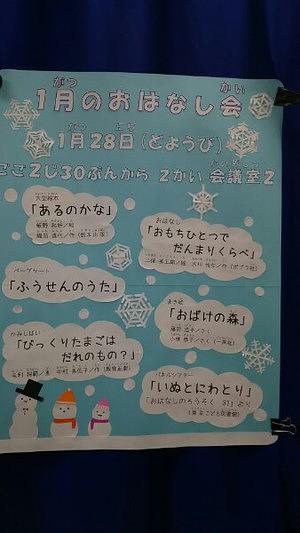 1月のおはなし会
がつ かい
1月28日(どようび)
ごご2じ30ぷんから 2かい 会議室2
大型絵本
「あるのかな」
おはなし
「おもちひとつで
だんまりくらべ」
ペープサート
「ふうせんのうた」
まき絵
「おばけの森」
かみしばい
「びっくりたまごは
だれのもの?」
パネルシアター
「いぬとにわとり」
「おはなしのろうそく 31」より